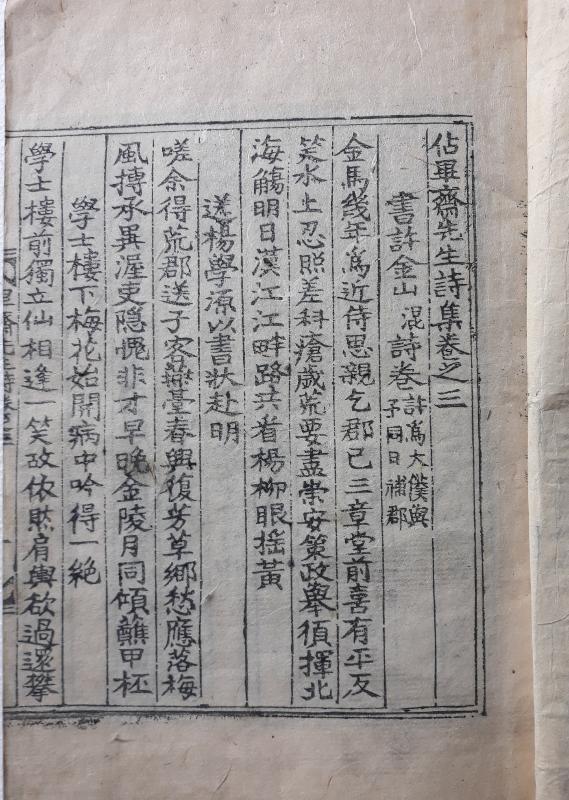 佔畢齋先生詩集卷之三
書許金山混詩卷許爲太僕與
子同日補郡
金馬幾年爲近侍思親乞郡已三章堂前喜有平反
笑水上忍照差科瘡歲荒要盡崇安策政舉須揮北
海觴明日漢江江畔路共看楊柳眼搖黃
送楊學源以書狀赴明
嗟余得荒郡送子客燕臺春興復芳草鄉愁應落梅
風摶承異渥吏隱愧非才早晩金陵月同傾蘸甲杯
學士樓下梅花始開病中吟得一絶
學士樓前獨立仙相逢一笑故依然肩輿欲過還攀